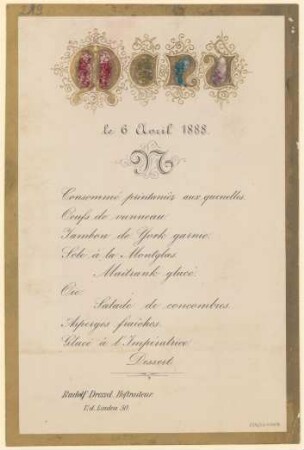 Menu
le 6 Avril 1888.
N
Consommé printanier aux quenelles.
Oeufs de vanneau
Jambon de York garnie.
Sole à la Montglas
Maitrank glacé.
Oie
Salade de concombres.
Asperges fraîches.
Glace à l'Impératrice
Dessert.
Rudolf Dressel, Hoftraiteur
U. d. Linden 50.